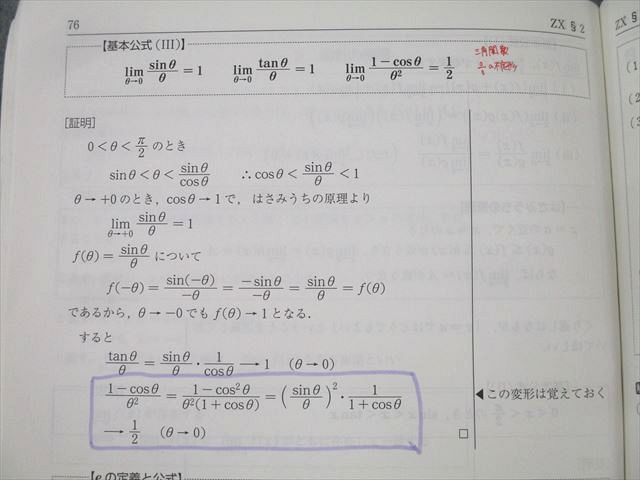 76
ZX §2
【基本公式(III)】
lim_{θ→0} sinθ/θ = 1  lim_{θ→0} tanθ/θ = 1  lim_{θ→0} (1−cosθ)/θ² = 1/2
三角関数
[証明]
0<θ<π/2 のとき
sinθ<θ<sinθ/cosθ ∴cosθ<sinθ/θ<1
θ→+0のとき, cosθ→1で, はさみうちの原理より
lim_{θ→+0} sinθ/θ = 1
f(θ)=sinθ/θ について
f(−θ)=sin(−θ)/−θ=−sinθ/−θ=sinθ/θ=f(θ)
であるから, θ→−0でも f(θ)→1となる.
すると
tanθ/θ=sinθ/θ・1/cosθ→1 (θ→0)
(1−cosθ)/θ²=(1−cos²θ)/θ²(1+cosθ)=(sinθ/θ)²・1/(1+cosθ)
◀この変形は覚えておく
→1/2 (θ→0)
□
【eの定義と公式】